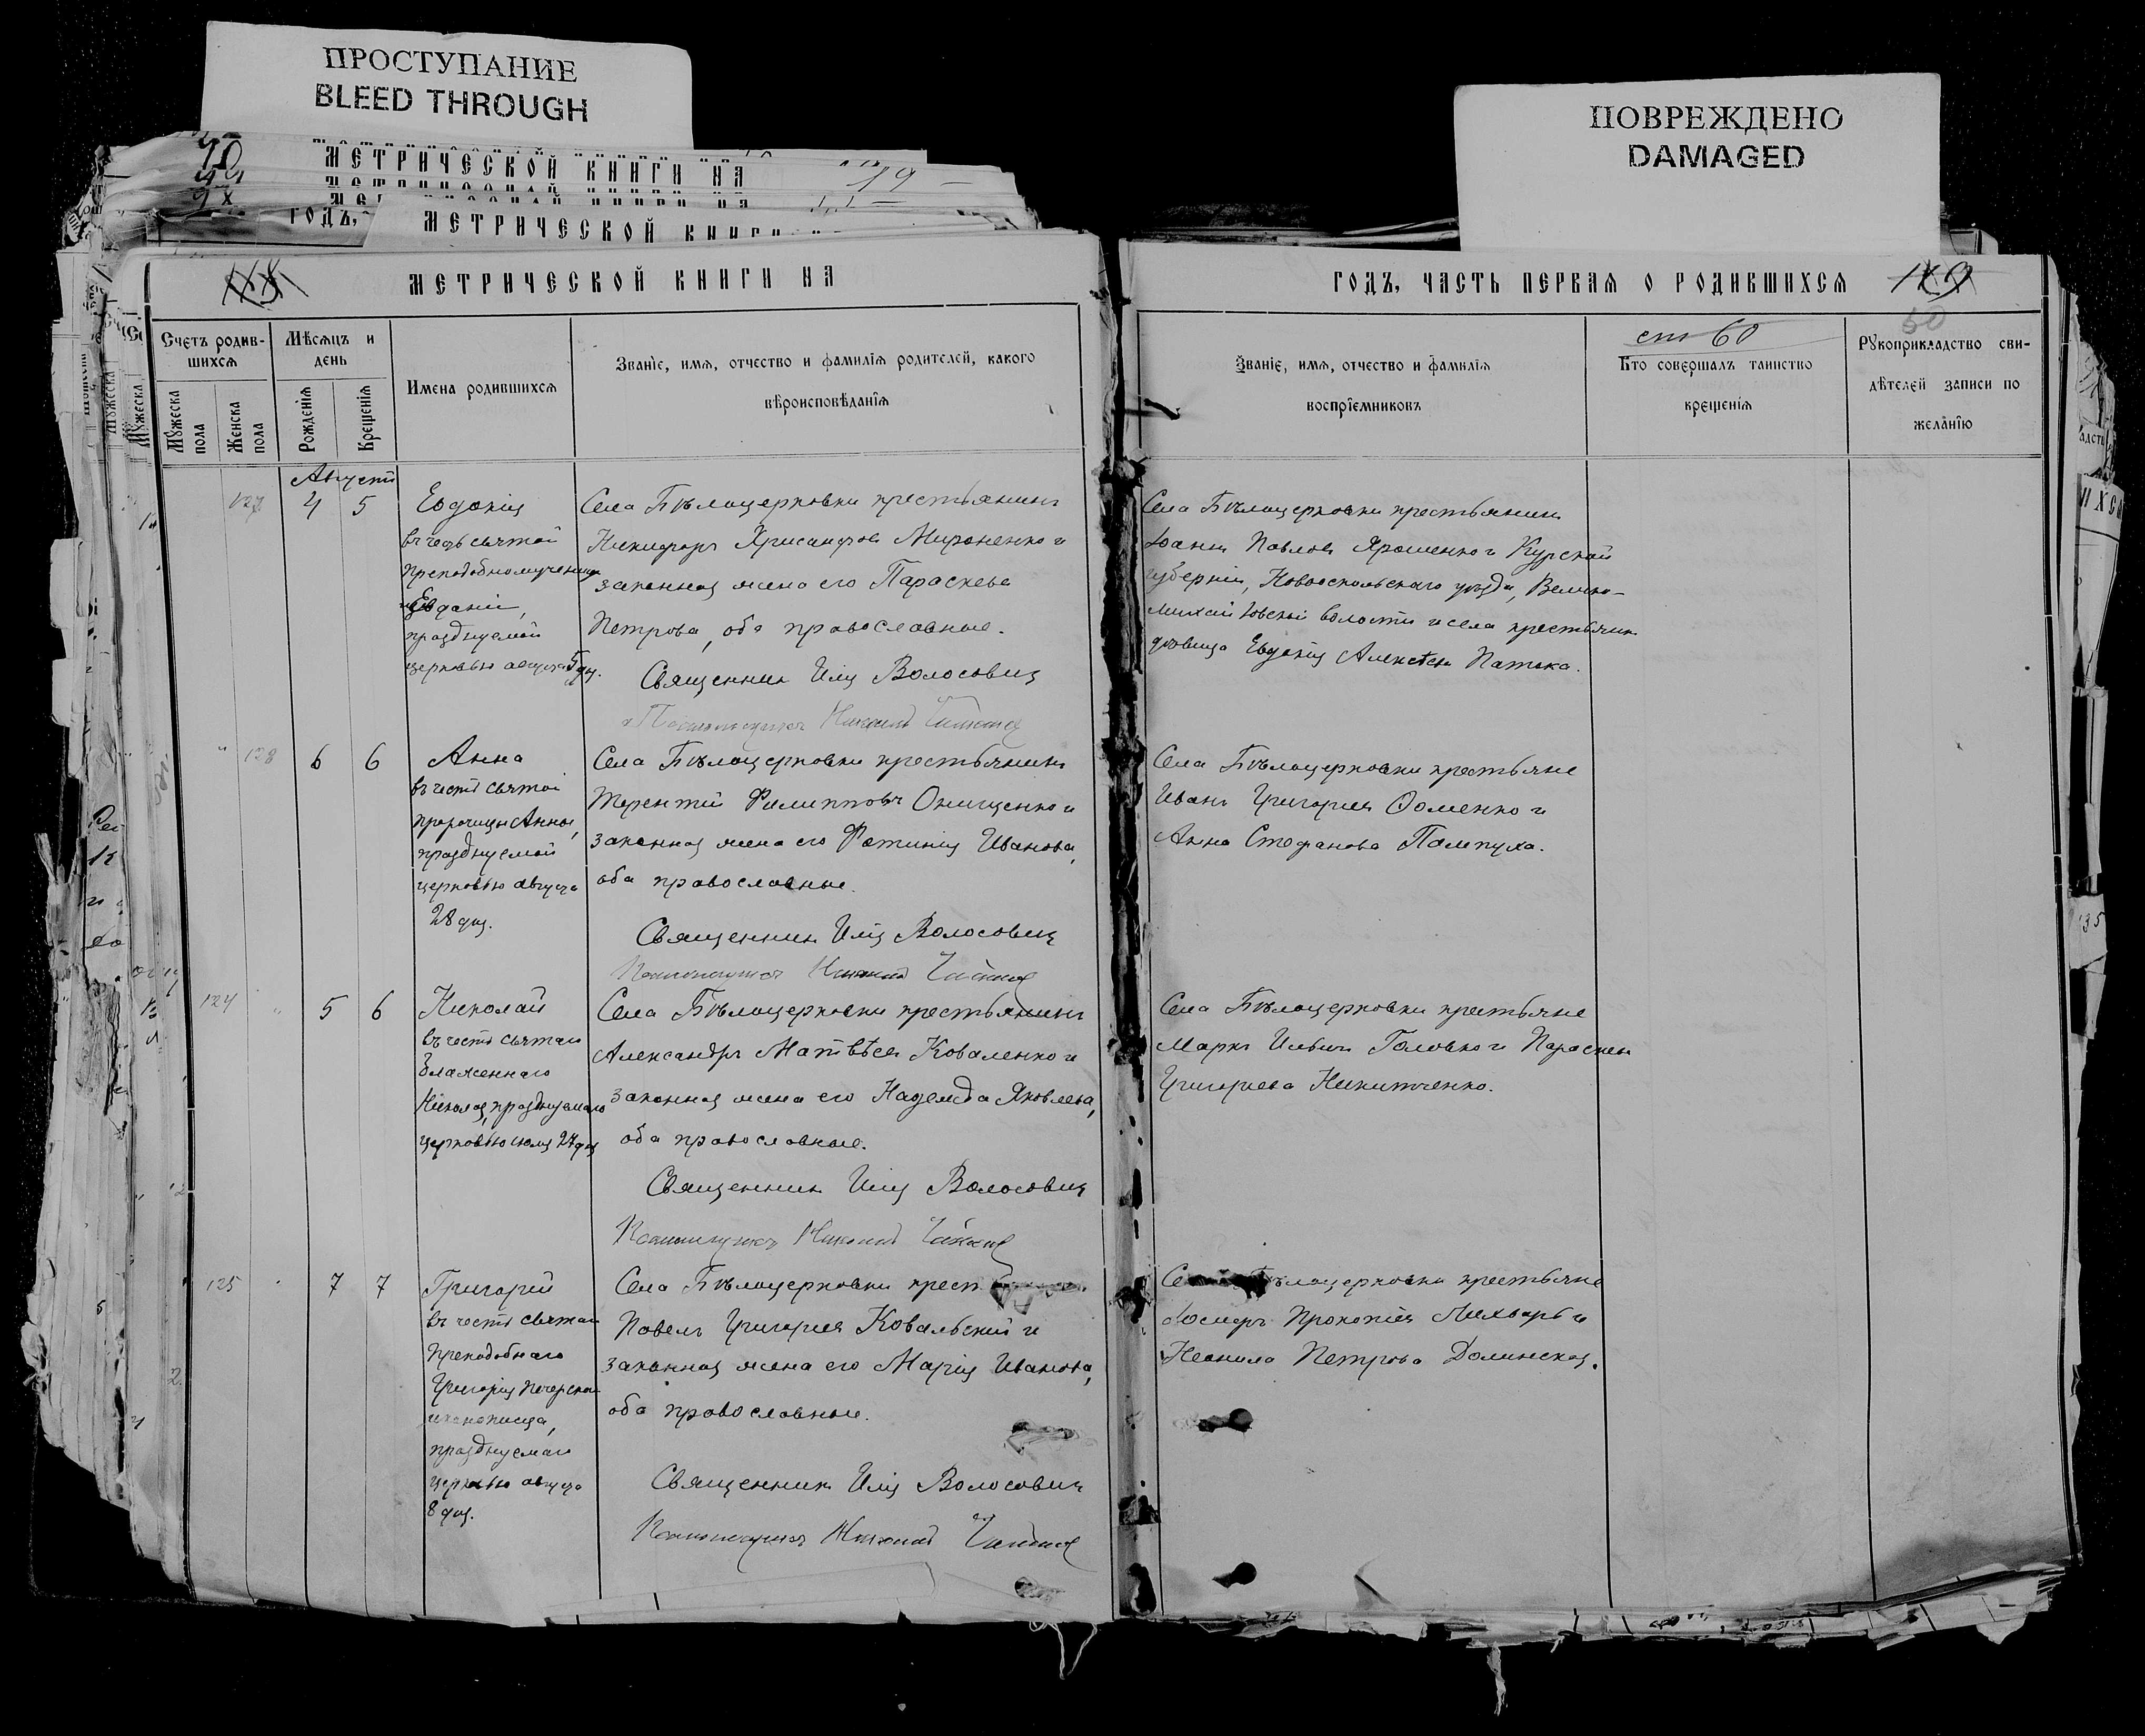 ПРОСТУПАНИЕ
BLEED THROUGH
ПОВРЕЖДЕНО
DAMAGED
МЕТРИЧЕСКОЙ КНИГИ НА
ГОДЪ,
МЕТРИЧЕСКОЙ КНИГИ
МЕТРИЧЕСКОЙ КНИГИ НА
ГОДЪ, ЧАСТЬ ПЕРВАЯ О РОДИВШИХСЯ
Счетъ родив-
шихся
Мужеска
пола
Женска
пола
Мѣсяцъ и
день
Рожденія
Крещенія
Имена родившихся
Званіе, имя, отчество и фамилія родителей, какого
вѣроисповѣданія
Званіе, имя, отчество и фамилія
воспріемниковъ
ст 60
Кто совершалъ таинство
крещенія
60
Рукоприкладство сви-
дѣтелей записи по
желанію
Августъ
127
4 5
Евдокія
въ честь святой
Преподобномученицы
Евдокіи,
празднуемой
церковью августа 5 дня.
Села Бѣлоцерковки крестьянинъ
Никифоръ Хрисанфовъ Мироненко и
законная жена его Параскева
Петрова, оба православные.
Священникъ Илія Волосовичъ
Псаломщикъ Николай
Села Бѣлоцерковки крестьянинъ
Іоаннъ Павловъ Ярошенко и Курской
губерніи, Новооскольскаго уѣзда, Велико-
Михайловской волости и села крестьян.
дѣвица Евдокія Алексѣева
128
6 6
Анна
въ честь святой
пророчицы Анны,
празднуемой
церковью августа
28 дня.
Села Бѣлоцерковки крестьянинъ
Терентій Филипповъ Онищенко и
законная жена его Фотинія Иванова,
оба православные.
Священникъ Илія Волосовичъ
Псаломщикъ Николай
Села Бѣлоцерковки крестьяне
Иванъ Григорьевъ Ѳоменко и
Анна Стефанова Пампуха.
124
5 6
Николай
въ честь святаго
блаженнаго
Николая, празднуемаго
церковью іюля 27 дня
Села Бѣлоцерковки крестьянинъ
Александръ Матвѣевъ Коваленко и
законная жена его Надежда Яковлева,
оба православные.
Священникъ Илія Волосовичъ
Псаломщикъ Николай
Села Бѣлоцерковки крестьяне
Маркъ Ильинъ Головко и Параскева
Григорьева Никитченко.
125
7 7
Григорій
въ честь святаго
Преподобнаго
Григорія Печерскаго
иконописца,
празднуемаго
церковью августа
8 дня.
Села Бѣлоцерковки крест
Павелъ Григорьевъ Ковальскій и
законная жена его Марія Иванова,
оба православные.
Священникъ Илія Волосовичъ
Псаломщикъ Николай
Бѣлоцерковки крестьяне
Іосифъ Прокопіевъ и
Неонила Петрова Долинская.